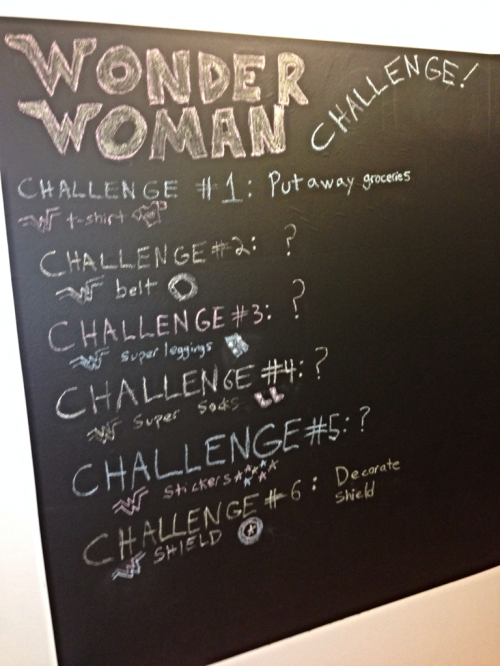 WONDER
WOMAN
CHALLENGE!
CHALLENGE #1: Put away groceries
W t-shirt
CHALLENGE #2: ?
W belt
CHALLENGE #3: ?
W Super leggings
CHALLENGE #4: ?
W Super Socks
CHALLENGE #5: ?
W Stickers
CHALLENGE #6: Decorate
shield
W SHIELD